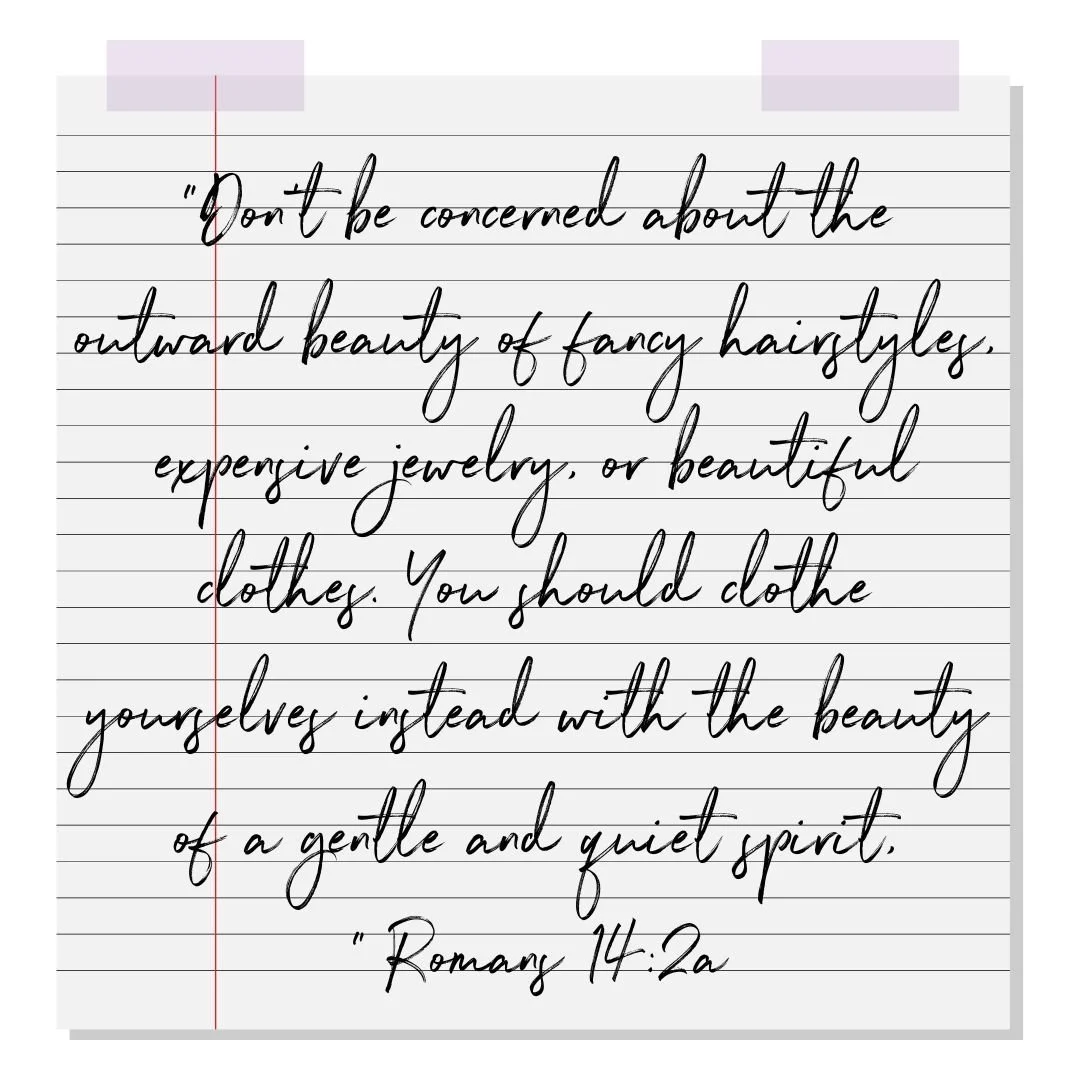 "Don't be concerned about the
outward beauty of fancy hairstyles,
expensive jewelry, or beautiful
clothes. You should clothe
yourselves instead with the beauty
of a gentle and quiet spirit,
" Romans 14:2a